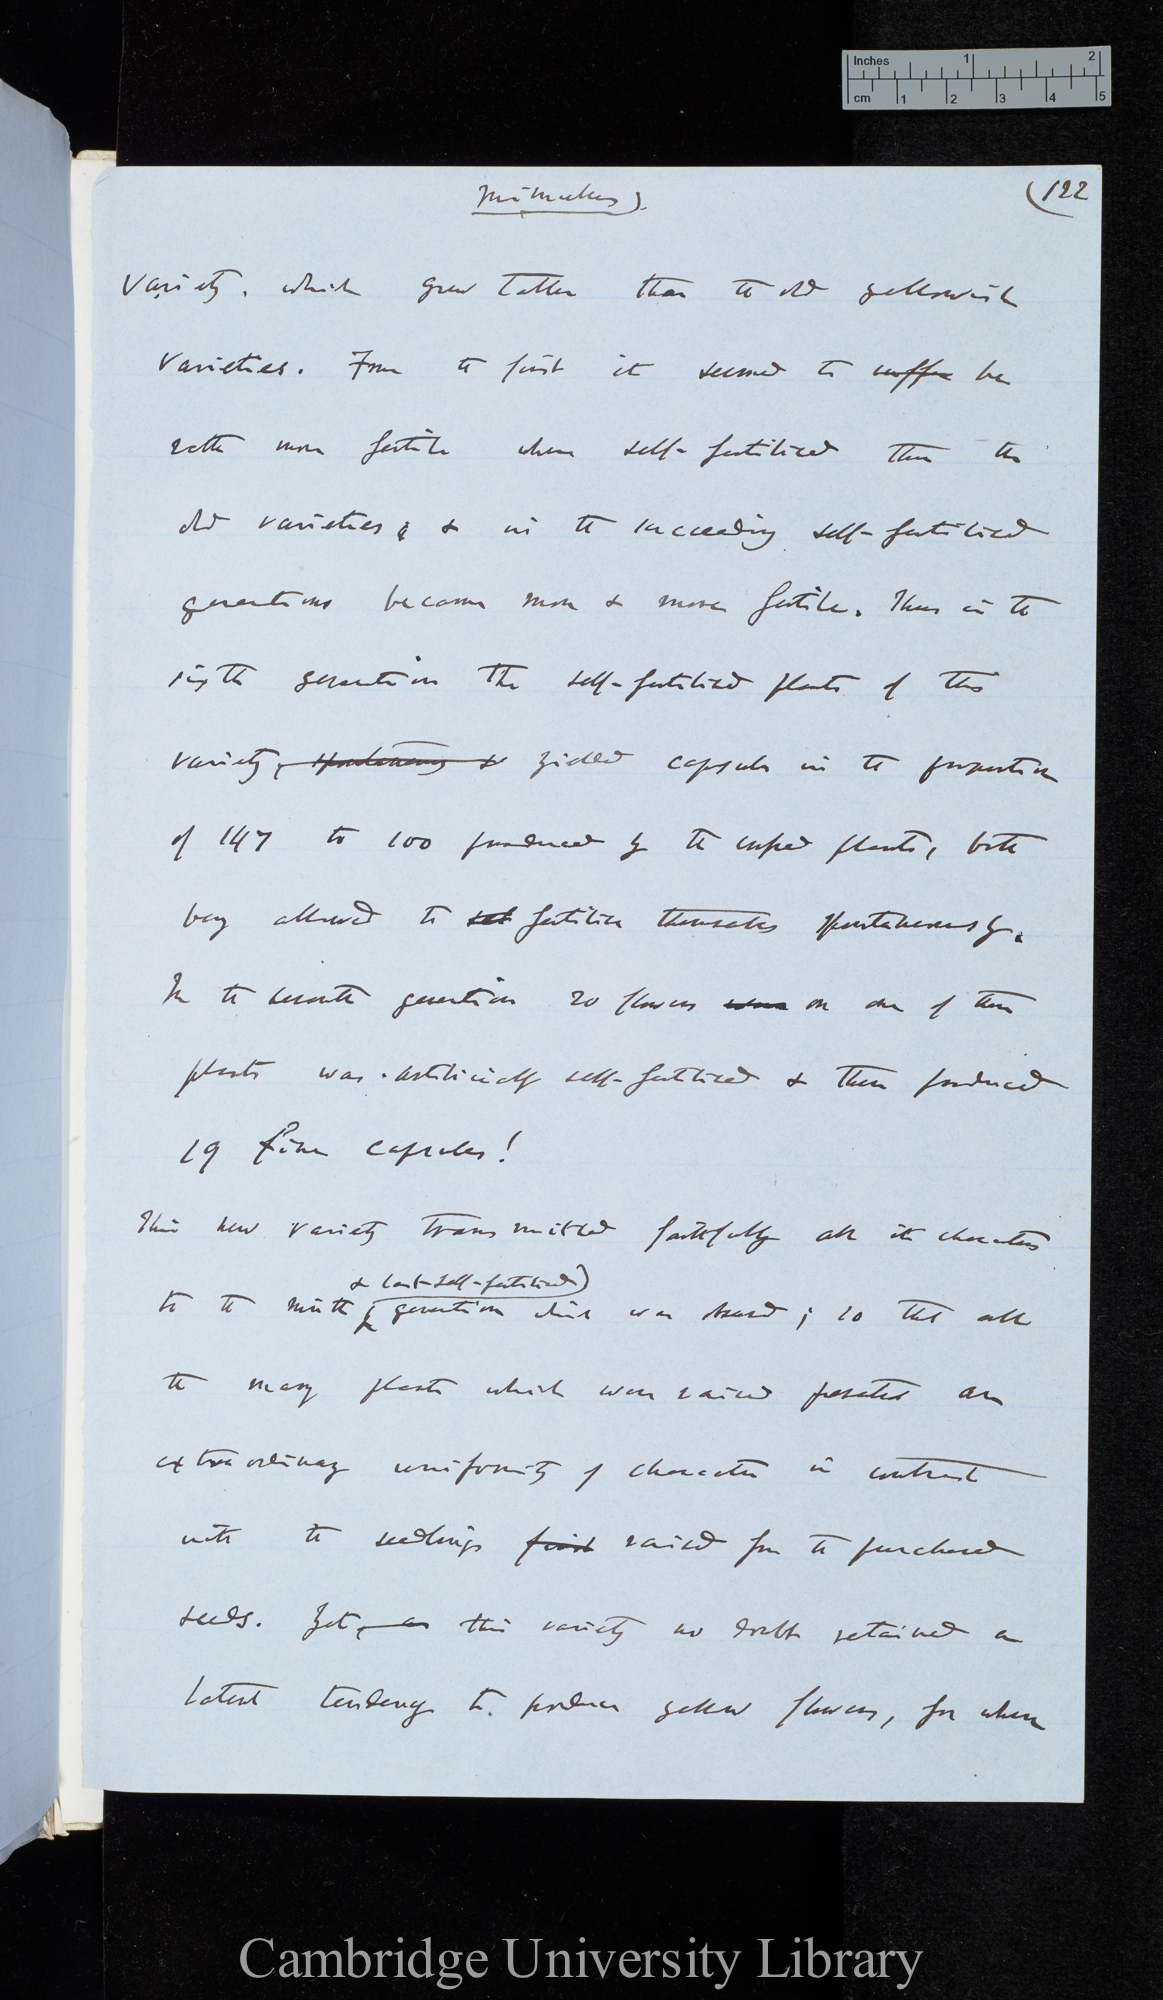 Inches 1 2
cm 1 2 3 4 5
Mimulus).
(122
variety, which grew taller than the old yellowish
varieties. From the first it seemed to suffer be
rather more fertile when self-fertilised than the
old varieties, & in the succeeding self-fertilised
generations became more & more fertile. Thus in the
sixth generation the self-fertilised plants of this
variety, spontaneously & yielded capsules in the proportion
of 147 to 100 produced by the crossed plants, both
being allowed to self fertilise themselves spontaneously.
In the seventh generation 20 flowers were on one of these
plants was artificially self-fertilised & these produced
19 fine capsules!
This new variety transmitted faithfully all its characters
& last self-fertilised)
to the ninth generation which was raised; so that all
the many plants which were raised presented an
extraordinary uniformity of character in contrast
with the seedlings first raised from the purchased
seeds. Yet, as this variety no doubt retained a
latent tendency to produce yellow flowers, for when
Cambridge University Library